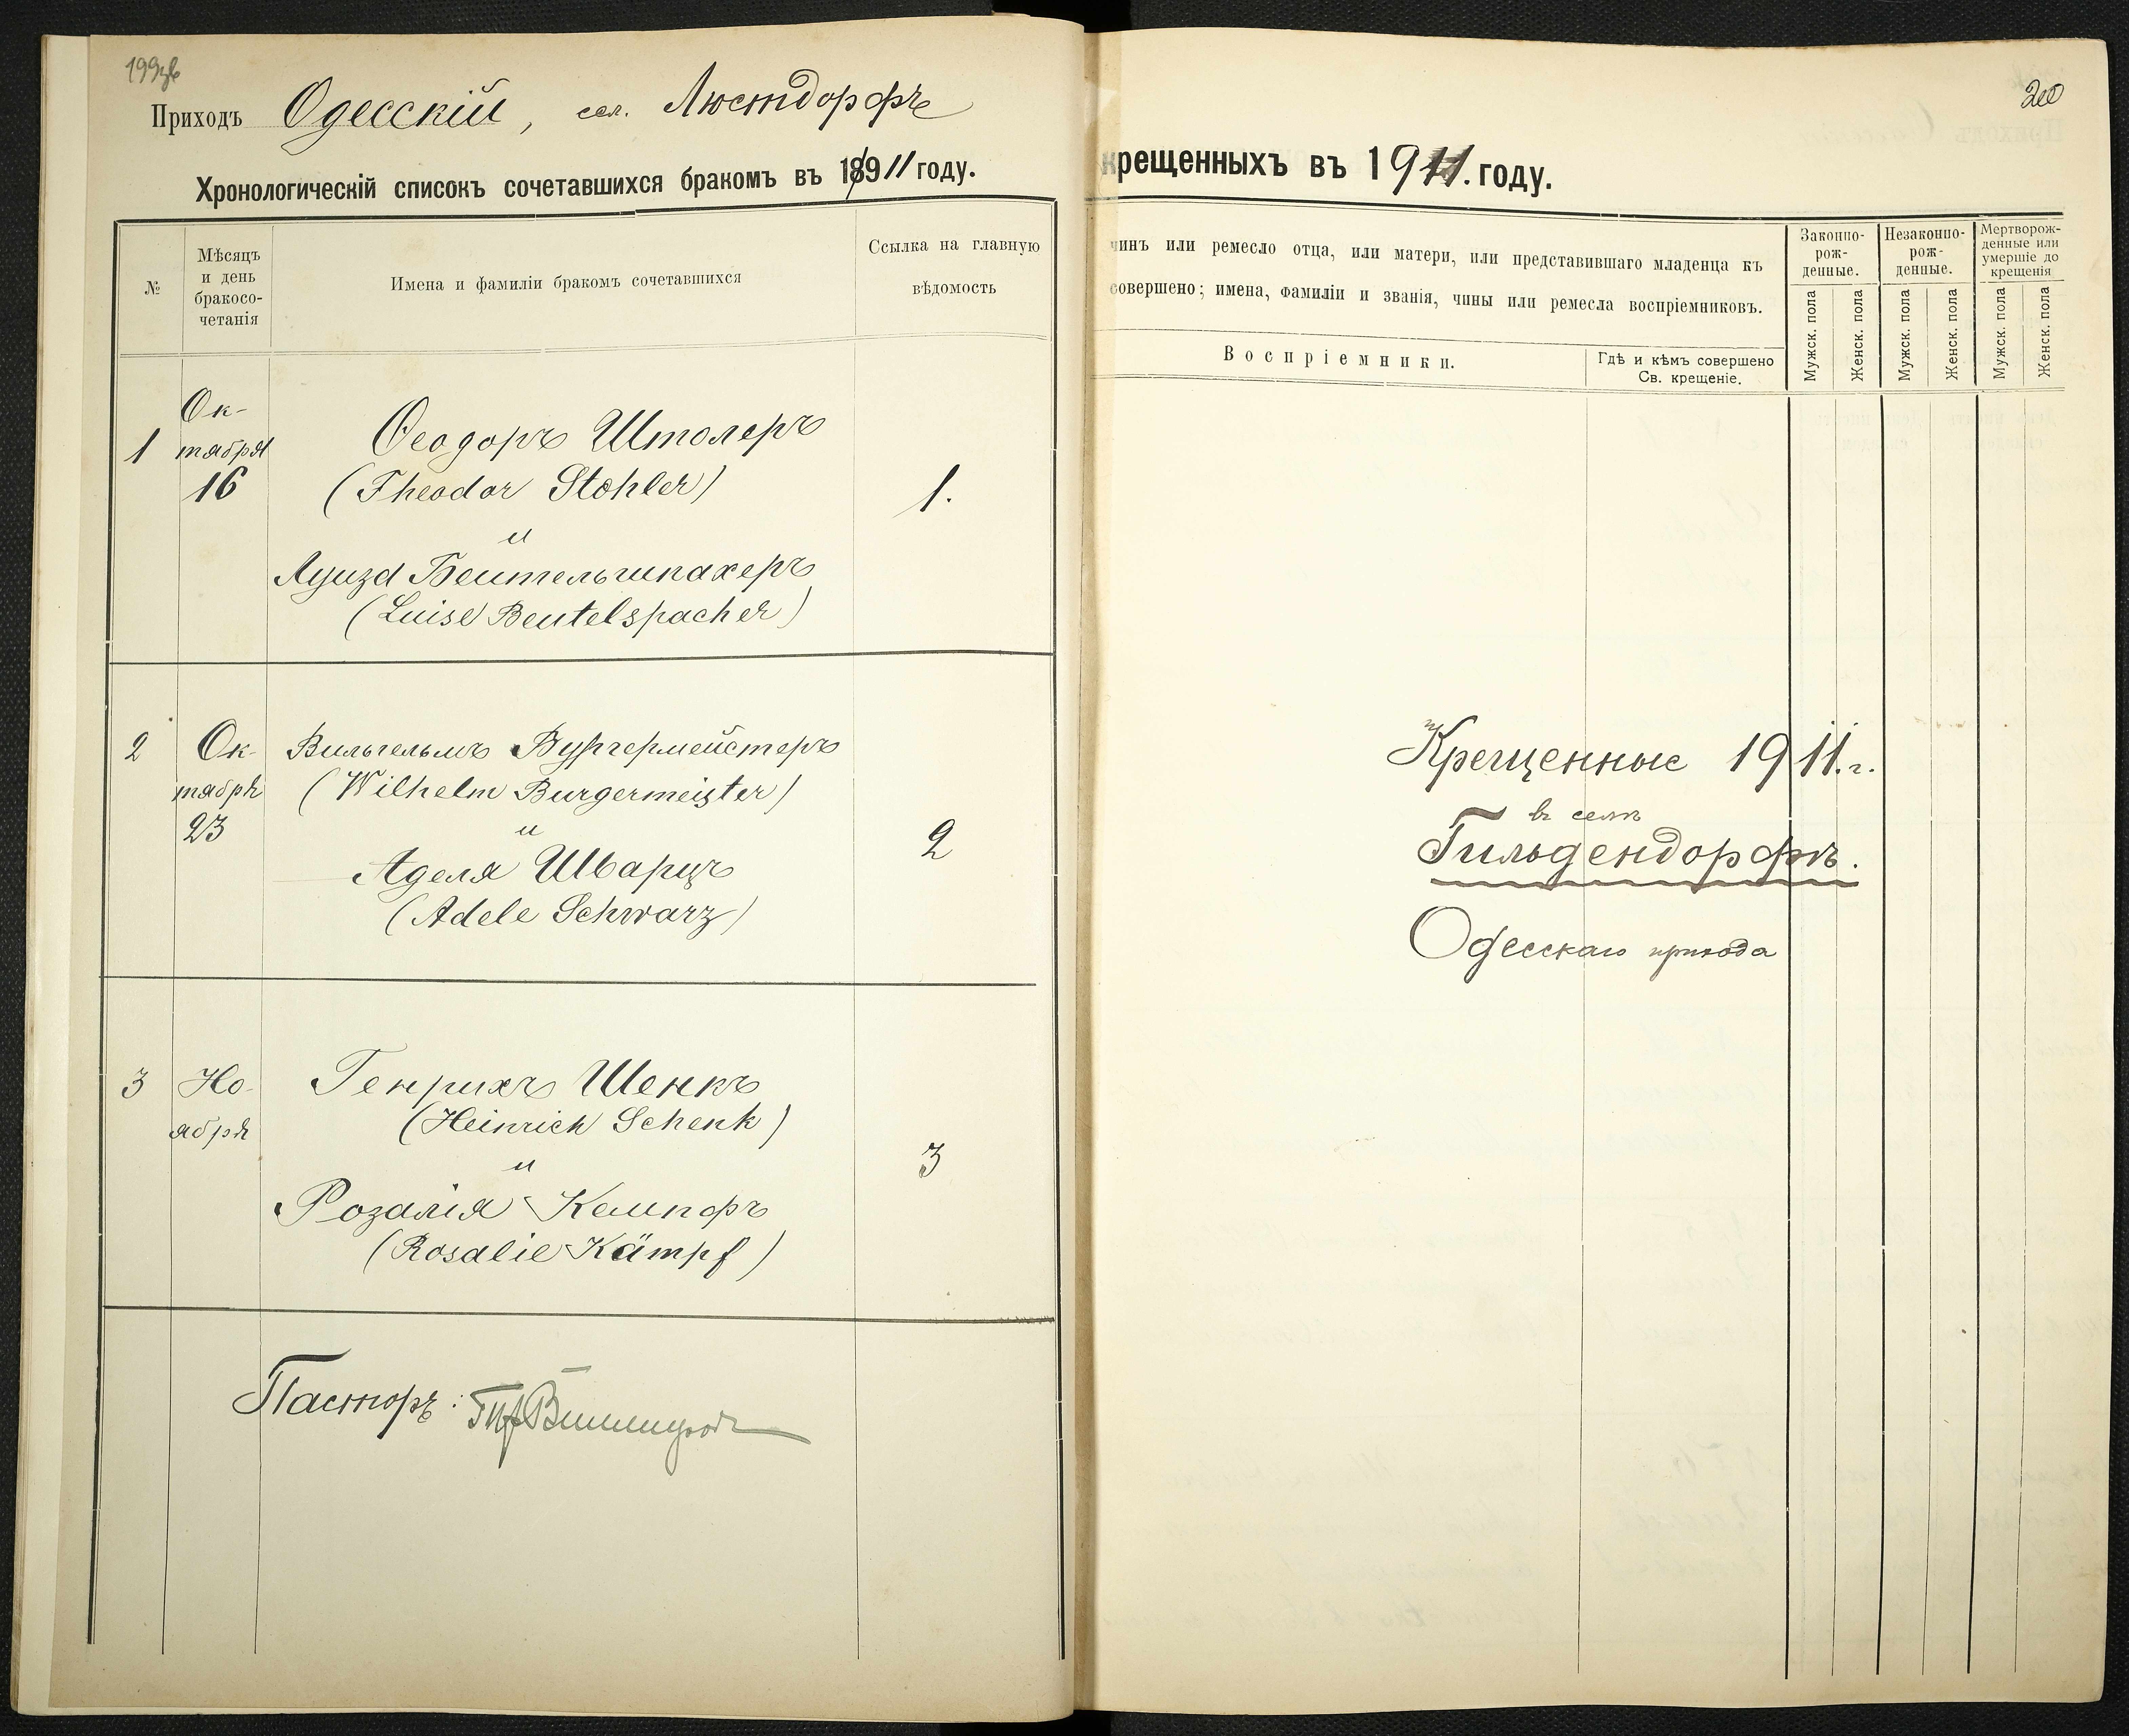 199 об
Приходъ Одесскій, сел. Люстдорфъ
Хронологическій списокъ сочетавшихся бракомъ въ 18911 году.
№
Мѣсяцъ
и день
бракосо-
четанія
Имена и фамиліи бракомъ сочетавшихся
Ссылка на главную
вѣдомость
1
Ок-
тября
16
Ѳеодоръ Штолеръ
(Theodor Stohler)
и
Луиза Беительшпахеръ
(Luise Beutelspacher)
1.
2
Ок-
тября
23
Вильгельмъ Бургермейстеръ
(Wilhelm Burgermeister)
и
Аделя Шварцъ
(Adele Schwarz)
2
3
Но-
ября
Генрихъ Шенкъ
(Heinrich Schenk)
и
Розалія Кемпфъ
(Rosalie Kämpf)
3
Пасторъ:
200
крещенныхъ въ 1911. году.
чинъ или ремесло отца, или матери, или представившаго младенца къ
совершено; имена, фамиліи и званія, чины или ремесла воспріемниковъ.
Воспріемники.
Гдѣ и кѣмъ совершено
Св. крещеніе.
Законно-
рож-
денные.
Незаконно-
рож-
денные.
Мертворож-
денные или
умершіе до
крещенія
Мужск. пола
Женск. пола
Мужск. пола
Женск. пола
Мужск. пола
Женск. пола
Крещенные 1911.г.
въ селѣ
Гильдендорфѣ.
Одесскаго прихода